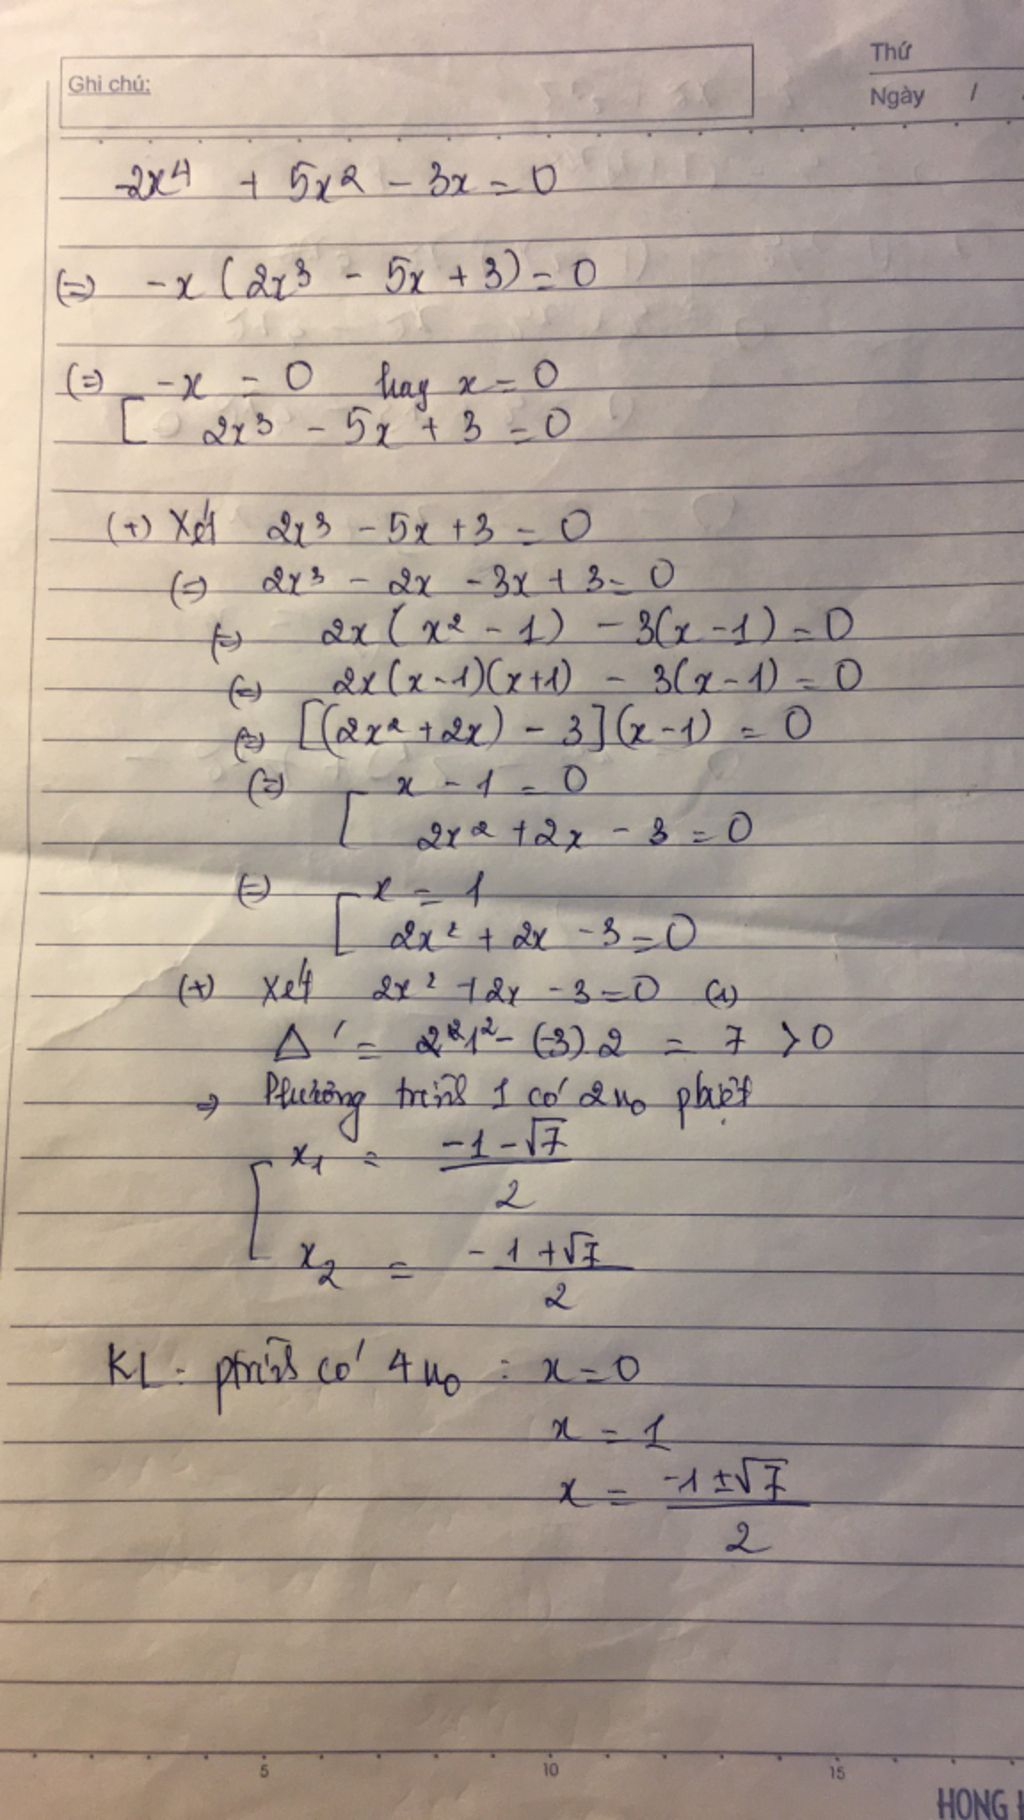 Thứ
Ghi chú:
Ngày /
-2x⁴ + 5x² - 3x = 0
(=) -x (2x³ - 5x + 3) = 0
(=) [ -x = 0 hay x = 0
2x³ - 5x + 3 = 0
(+) Xét 2x³ - 5x + 3 = 0
(=) 2x³ - 2x - 3x + 3 = 0
(=) 2x (x² - 1) - 3(x - 1) = 0
(=) 2x(x-1)(x+1) - 3(x - 1) = 0
(=) [(2x² + 2x) - 3](x-1) = 0
(=) [ x - 1 = 0
2x² + 2x - 3 = 0
(=) [ x = 1
2x² + 2x - 3 = 0
(+) Xét 2x² + 2x - 3 = 0 (1)
Δ' = 1² - (-3).2 = 7 > 0
⇒ Phương trình 1 có 2 no pbiệt
[ x₁ = (-1 - √7)/2
x₂ = (-1 + √7)/2
KL: ptrình có 4 no : x = 0
x = 1
x = (-1 ± √7)/2
5 10 15
HONG